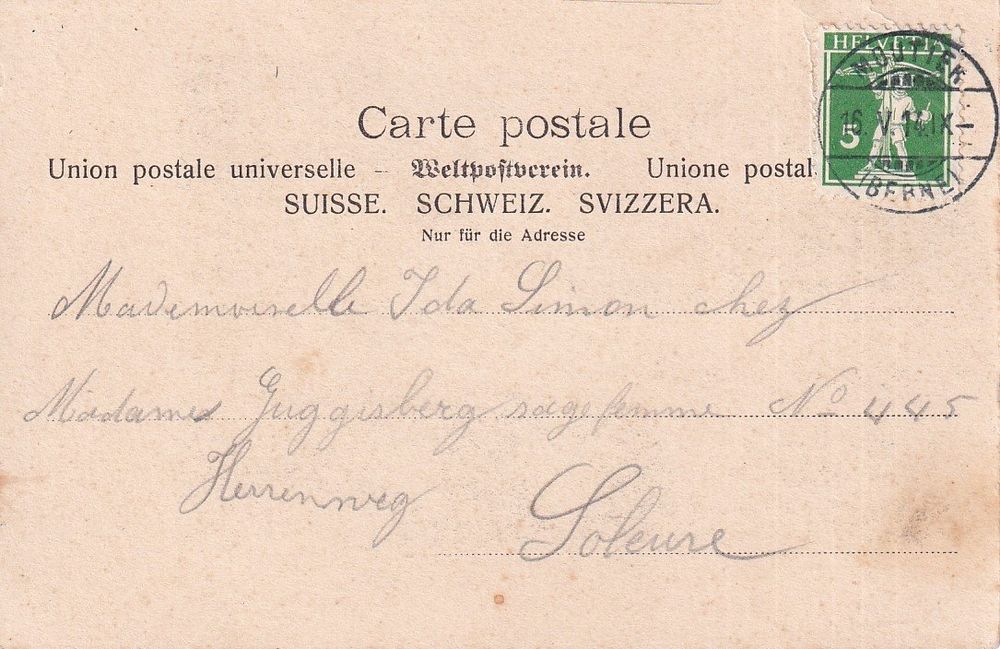 HELVETIA
5
MOUTIER
16.V.14.IX-
(BERNE)
Carte postale
Union postale universelle – Weltpostverein. Unione postal
SUISSE. SCHWEIZ. SVIZZERA.
Nur für die Adresse
Mademoiselle Ida Simon chez
Madame Guggisberg sagefemme No 445
Herrenweg
Soleure